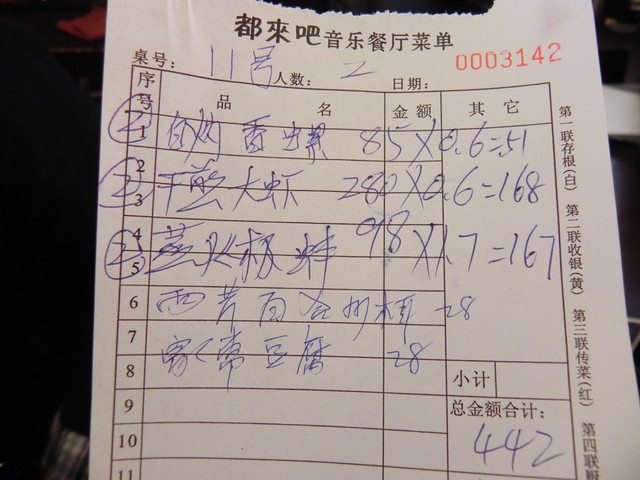 都來吧音乐餐厅菜单
桌号: 11号 人数: 2 日期: 0003142
序号 品 名 金额 其 它
② 1 白灼香螺 85×0.6=51
2
② 3 干煎大虾 280×0.6=168
4
② 5 98×1.7=167
6 西芹百合 28
7 家常豆腐 28
8 小计
9 总金额合计:
10 442
11
第一联存根(白) 第二联收银(黄) 第三联传菜(红) 第四联厨